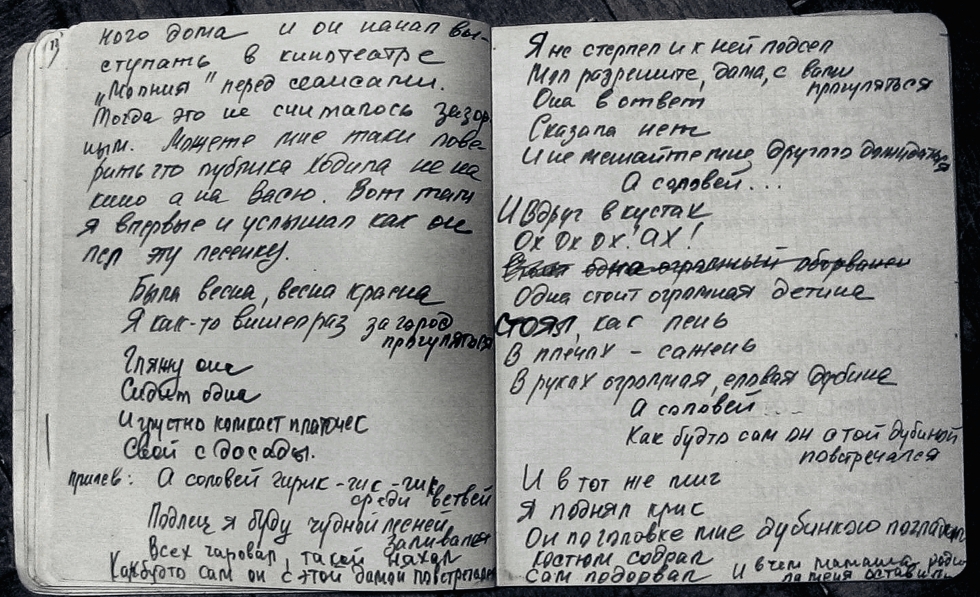 13
ного дома и он начал вы-
ступать в кинотеатре
"Молния" перед сеансами.
Тогда это не считалось зазор
ным. Можете мне таки пове
рить что публика ходила не на
кино а на Васю. Вот там
я впервые и услышал как он
пел эту песенку.
Была весна, весна красна
Я как-то вышел раз за город
прогуляться
Гляжу она
Сидит одна
И грустно комкает платочек
Свой с досады.
припев: А соловей чирик-чик-чик
среди ветвей
Подлец я буду чудной песней
заливался
Всех чаровал, такой нахал
Как будто сам он с этой дамой повстречался
Я не стерпел и к ней подсел
Мол разрешите, дама, с вами
прогуляться
Она в ответ
Сказала нет
И не мешайте мне другого дожидаться
А соловей...
И Вдруг в кустах
Ох Ох Ох! АХ!
одна огромный оборванец
Одна стоит огромная детина
стоял, как пень
В плечах - сажень
В руках огромная, еловая дубина
А соловей...
Как будто сам он с той дубиной
повстречался
И в тот же миг
Я поднял крик
Он по головке мне дубинкою погладил
Костюм содрал
Сам подорвал И в чем мамаша роди
ла меня оставил